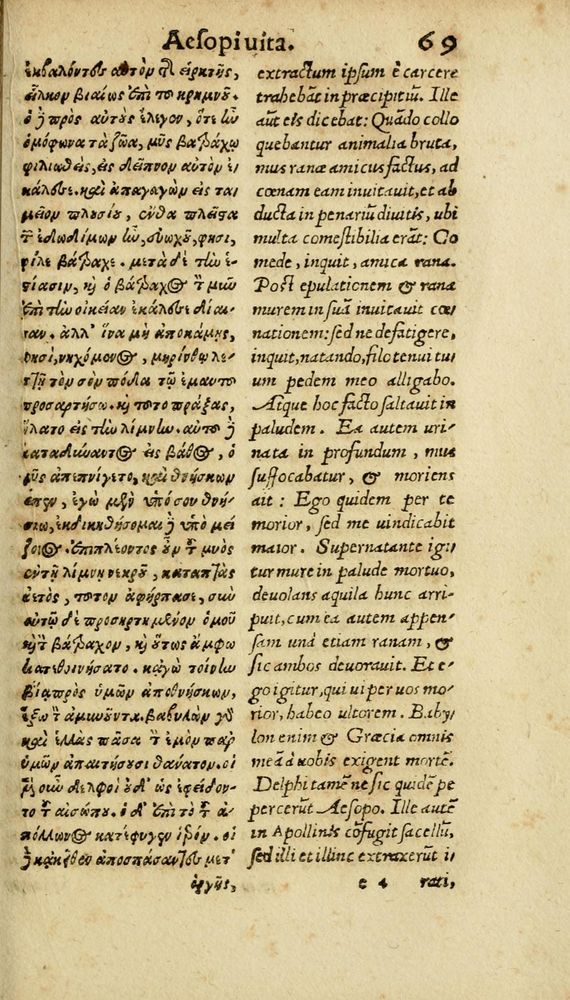 Aesopi vita. 69
ἐκβαλόντες αὐτὸν τῆς εἱρκτῆς,
εἷλκον βιαίως ἐπὶ τὸ κρημνόν.
ὁ δὲ πρὸς αὐτοὺς ἔλεγον, ὅτε ἦν
ὁμόφωνα τὰ ζῶα, μῦς βατράχῳ
φιλιωθεὶς, εἰς δεῖπνον αὐτὸν ἐ-
κάλεσε. καὶ ἀπαγαγὼν εἰς τα
μεῖον πλουσίου, ἔνθα πλεῖστα
τῶν ἐδωδίμων ἦν, φησι,
φίλε βάτραχε. μετὰ δὲ τὴν ἑ-
στίασιν, καὶ ὁ βάτραχος τὸν μῦν
ἐπὶ τὴν οἰκείαν ἐκάλεσε δίαι-
ταν. ἀλλ' ἵνα μὴ ἀποκάμῃς,
φησὶ, νηχόμενος, μηρίνθῳ λε-
πτῇ τὸν σὸν πόδα τῷ ἐμαυτοῦ
προσαρτήσω. καὶ τοῦτο πράξας,
ἥλατο εἰς τὴν λίμνην. αὐτοῦ δὲ
καταδύναντος εἰς βάθος, ὁ
μῦς ἀπεπνίγετο, καὶ θνήσκων
εἶπεν, ἐγὼ μὲν ὑπὸ σοῦ θνή-
σκω, ἐκδικηθήσομαι δὲ ὑπὸ μεί
ζονος. ἐπιπλέοντος οὖν τοῦ μυὸς
ἐν τῇ λίμνῃ νεκροῦ, καταπτὰς
ἀετὸς, τοῦτον ἀφήρπασε, σὺν
αὐτῷ δὲ προσηρτημένον ὁμοῦ
καὶ τὸν βάτραχον, καὶ οὕτως ἄμφω
κατεθοινήσατο. κἀγὼ τοίνυν
βίᾳ πρὸς ὑμῶν ἀποθνήσκων,
ἕξω τὸν ἀμυνοῦντα. βαβυλὼν γὰρ
καὶ ἑλλὰς πᾶσα τὸν ἐμὸν παρ'
ὑμῶν ἀπαιτήσουσι θάνατον. οἱ
μὲν οὖν δελφοὶ οὐδ' ὡς ἐφείδον-
το τοῦ αἰσώπου. ὁ δ' ἐπὶ τὸ τοῦ ἀ-
πόλλωνος κατέφυγεν ἱερόν. οἱ
δὲ κἀκεῖθεν ἀποσπάσαντες μετ'
ὀργῆς,
extractum ipsum è carcere
trahebāt in præcipitiū. Ille
aūt eis dicebat: Quādo collo
quebantur animalia bruta,
mus ranæ amicus factus, ad
cœnam eam inuitauit, et ab
ducta in penariū diuitis, ubi
multa comestibilia erāt: Co
mede, inquit, amica rana.
Post epulationem & rana
murem in suā inuitauit cœ
nationem: sed ne defatigere,
inquit, natando, filo tenui tu
um pedem meo alligabo.
Atque hoc facto saltauit in
paludem. Ea autem uri-
nata in profundum, mus
suffocabatur, & moriens
ait: Ego quidem per te
morior, sed me uindicabit
maior. Supernatante igi
tur mure in palude mortuo,
deuolans aquila hunc arri-
puit, cum ea autem appen-
sam unà etiam ranam, &
sic ambos deuorauit. Et e-
go igitur, qui ui per uos mo
rior, habeo ultorem. Baby
lon enim & Græcia omnis
meā à uobis exigent mortē.
Delphi tamē ne sic quidē pe
percerūt Aesopo. Ille autē
in Apollinis cōfugit sacellū,
sed illi et illinc extraxerūt i-
e 4 rati,